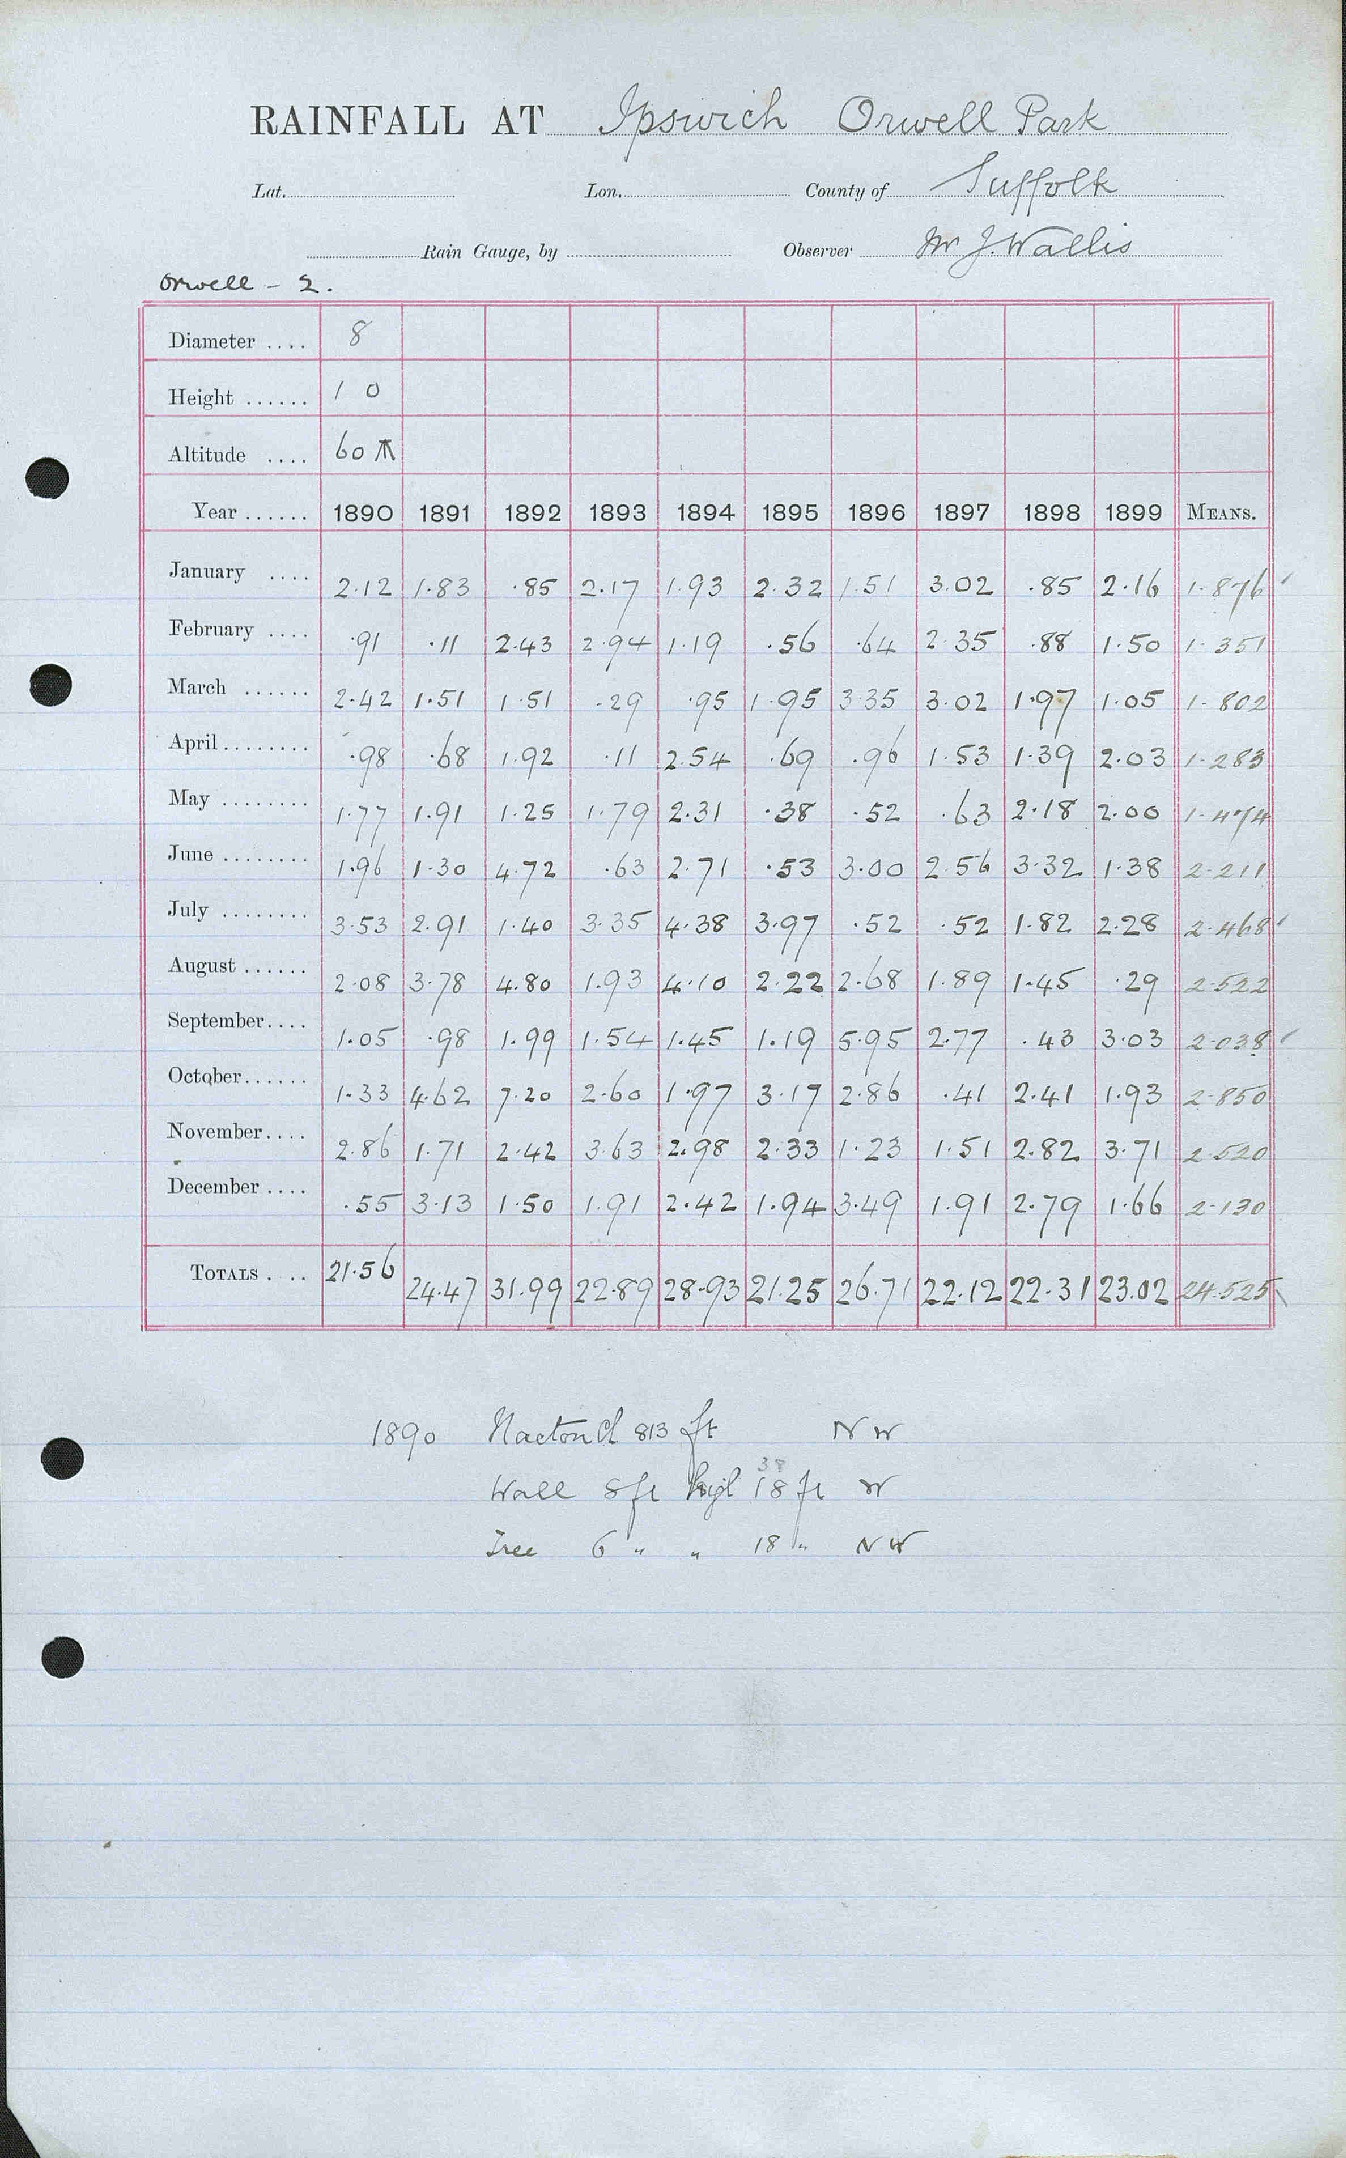 RAINFALL AT Ipswich Orwell Park
Lat. Lon. County of Suffolk
Rain Gauge, by Observer Mr J. Wallis
Orwell - 2.
Diameter .... 8
Height ...... 1 0
Altitude .... 60
Year ...... 1890 1891 1892 1893 1894 1895 1896 1897 1898 1899 MEANS.
January .... 2.12 1.83 .85 2.17 1.93 2.32 1.51 3.02 .85 2.16 1.876
February .... .91 .11 2.43 2.94 1.19 .56 .64 2.35 .88 1.50 1.351
March ...... 2.42 1.51 1.51 .29 .95 1.95 3.35 3.02 1.97 1.05 1.802
April ........ .98 .68 1.92 .11 2.54 .69 .96 1.53 1.39 2.03 1.283
May ........ 1.77 1.91 1.25 1.79 2.31 .38 .52 .63 2.18 2.00 1.474
June ........ 1.96 1.30 4.72 .63 2.71 .53 3.00 2.56 3.32 1.38 2.211
July ........ 3.53 2.91 1.40 3.35 4.38 3.97 .52 .52 1.82 2.28 2.468
August ...... 2.08 3.78 4.80 1.93 4.10 2.22 2.68 1.89 1.45 .29 2.522
September .... 1.05 .98 1.99 1.54 1.45 1.19 5.95 2.77 .43 3.03 2.038
October ...... 1.33 4.62 7.20 2.60 1.97 3.17 2.86 .41 2.41 1.93 2.850
November .... 2.86 1.71 2.42 3.63 2.98 2.33 1.23 1.51 2.82 3.71 2.520
December .... .55 3.13 1.50 1.91 2.42 1.94 3.49 1.91 2.79 1.66 2.130
TOTALS .... 21.56 24.47 31.99 22.89 28.93 21.25 26.71 22.12 22.31 23.02 24.525
1890 Nacton Ch 813 ft NW
38
Wall 8 ft high 18 ft W
Tree 6 " " 18 " NW